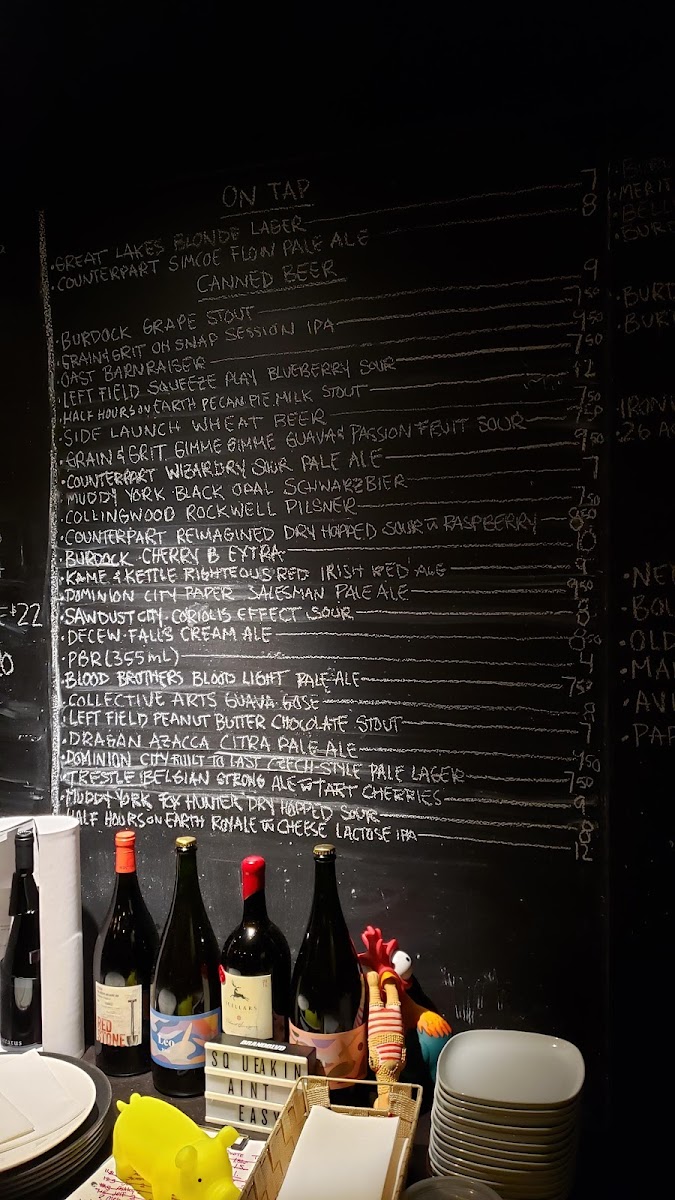 ON TAP
·GREAT LAKES BLONDE LAGER 7
·COUNTERPART SIMCOE FLOW PALE ALE 8
CANNED BEER
·BURDOCK GRAPE STOUT 9
·GRAIN & GRIT OH SNAP SESSION IPA 7.50
·OAST BARNRAISER
·LEFT FIELD SQUEEZE PLAY BLUEBERRY SOUR 7.50
·HALF HOURS ON EARTH PECAN PIE MILK STOUT 12
·SIDE LAUNCH WHEAT BEER 7.50
·GRAIN & GRIT GIMME GIMME GUAVA & PASSION FRUIT SOUR
·COUNTERPART WIZARDRY SOUR PALE ALE 9.50
·MUDDY YORK BLACK OPAL SCHWARZBIER 7
·COLLINGWOOD ROCKWELL PILSNER 7.50
·COUNTERPART REIMAGINED DRY HOPPED SOUR W RASPBERRY 8.50
·BURDOCK CHERRY B EXTRA
·KAME & KETTLE RIGHTEOUS RED IRISH RED ALE 9
·DOMINION CITY PAPER SALESMAN PALE ALE 9.50
·SAWDUST CITY CORIOLIS EFFECT SOUR 8
·DECEW FALLS CREAM ALE 8.50
·PBR (355 mL) 4
·BLOOD BROTHERS BLOOD LIGHT PALE ALE 7.50
·COLLECTIVE ARTS GUAVA GOSE 8
·LEFT FIELD PEANUT BUTTER CHOCOLATE STOUT 7
·DRAGAN AZACCA CITRA PALE ALE 7.50
·DOMINION CITY BUILT TO LAST CZECH-STYLE PALE LAGER 7.50
·TRESTLE BELGIAN STRONG ALE W TART CHERRIES 9
·MUDDY YORK FOX HUNTER DRY HOPPED SOUR 8
·HALF HOURS ON EARTH ROYALE W CHEESE LACTOSE IPA 12
$22
·MERIT
·BELL
·BUR
·BUR
·BUR
·26
·NE
·BO
·OLD
·MA
·AVI
·PAP
RED
STONE
Leo
CELLARS
BRANDNEU
SQUEAKIN
AINT
EASY